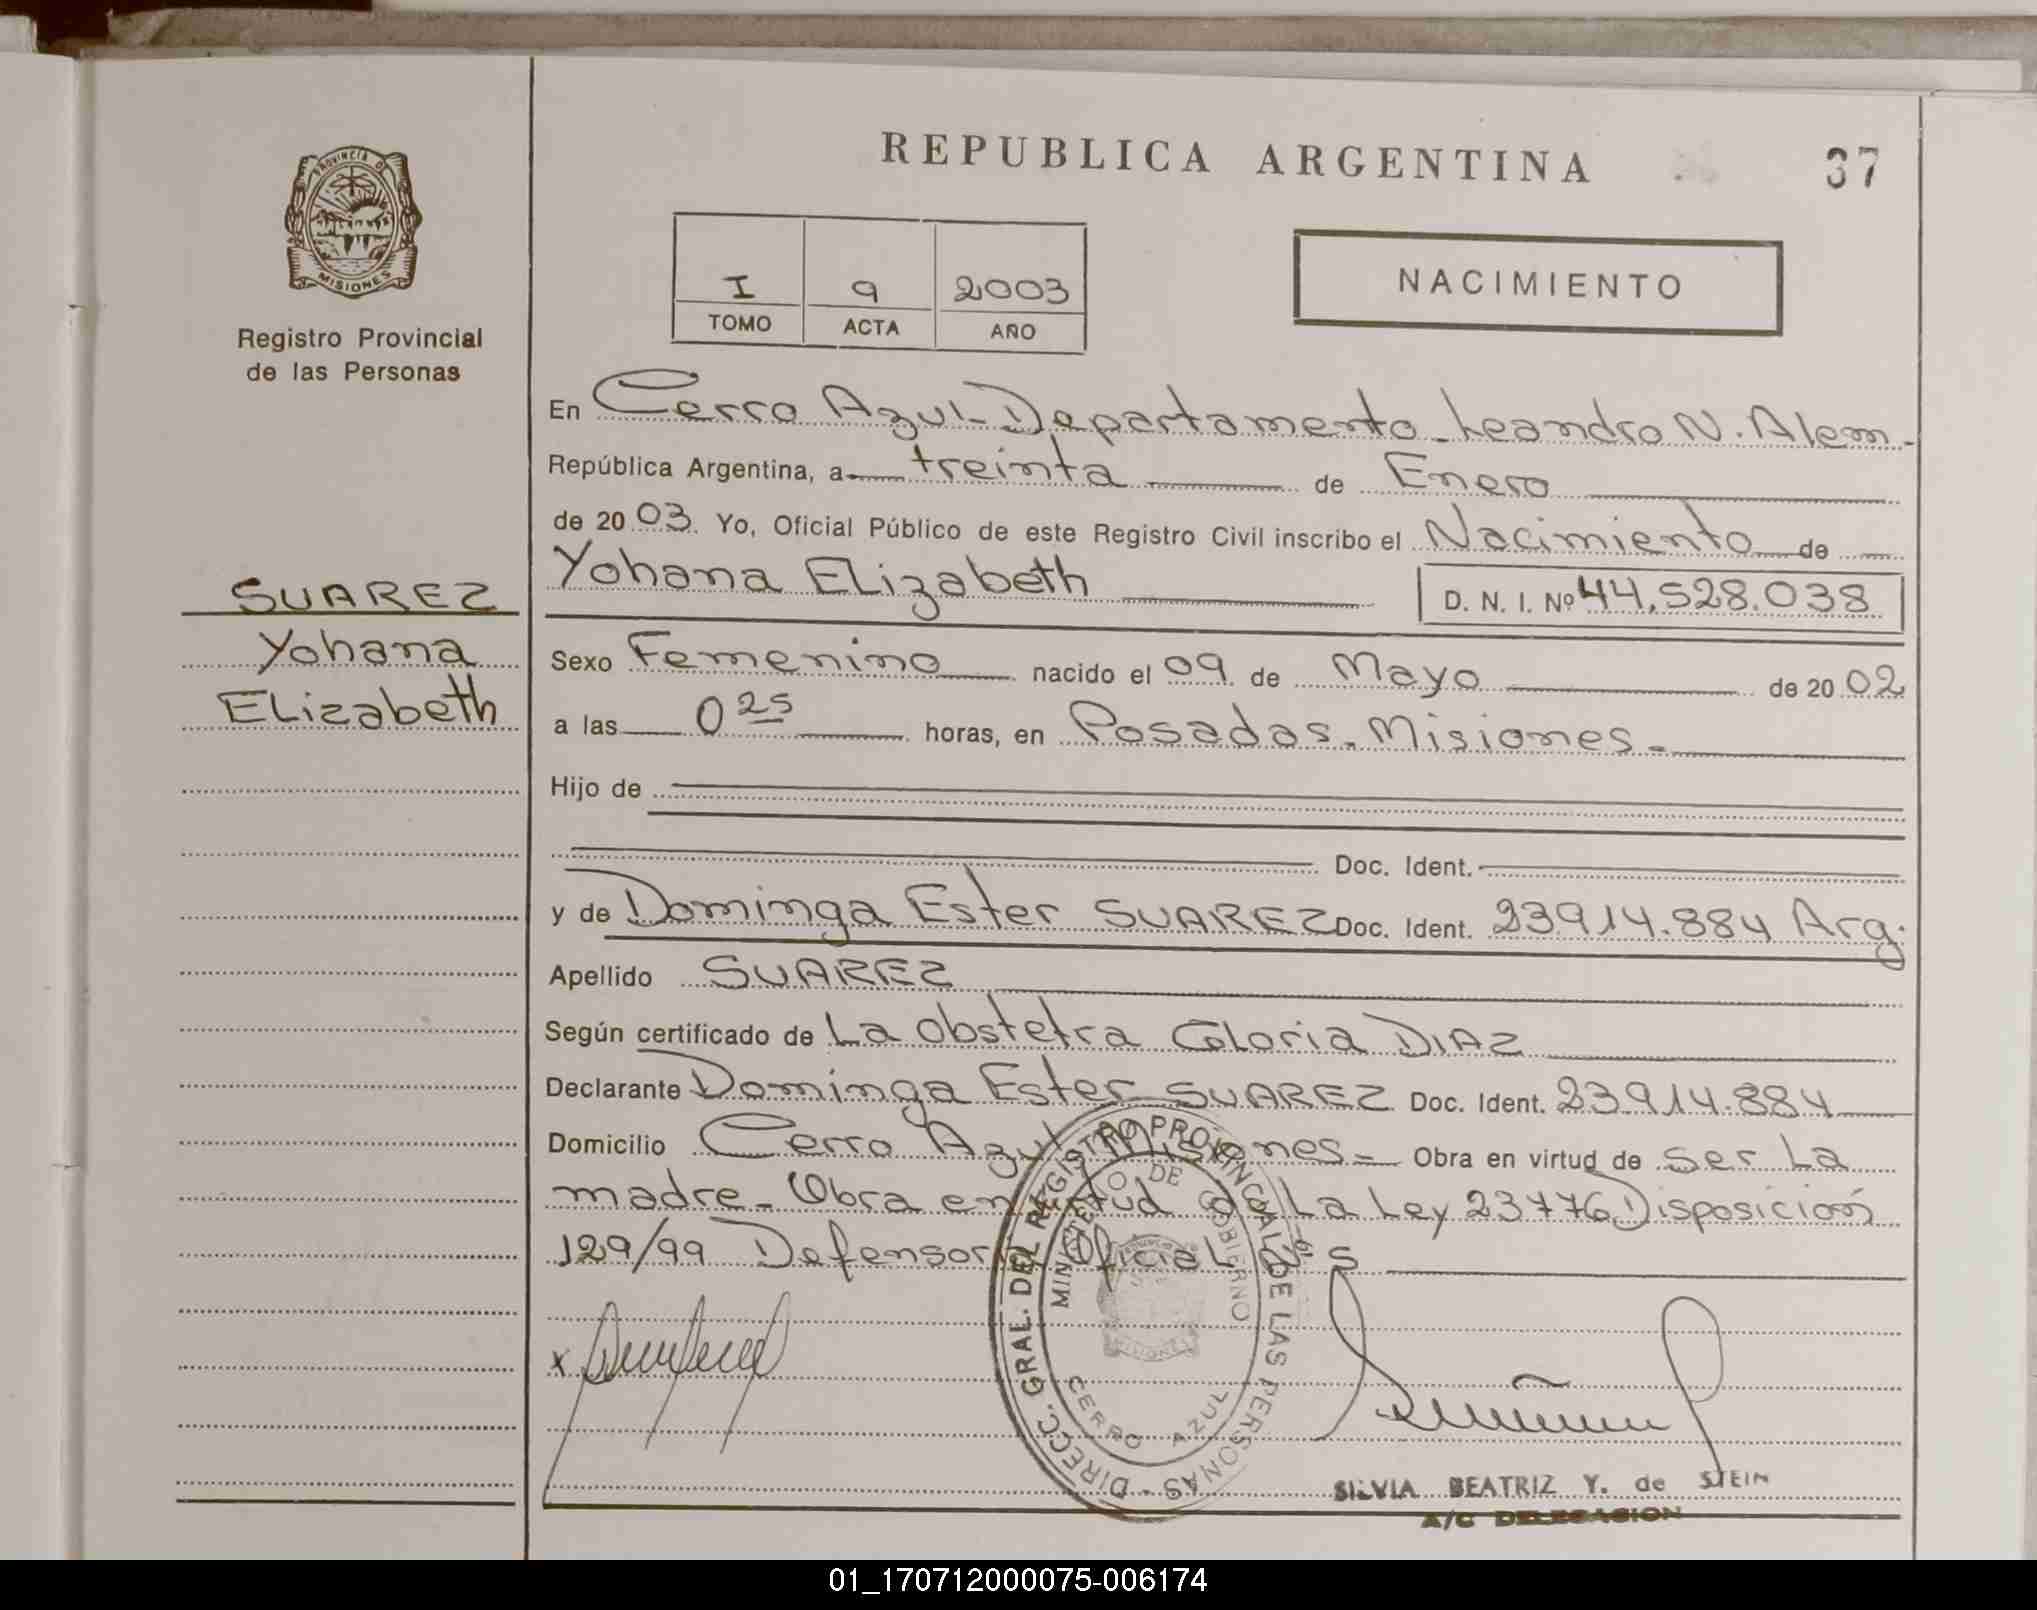 REPUBLICA ARGENTINA
37
PROVINCIA D
MISIONES
Registro Provincial
de las Personas
I 9 2003
TOMO ACTA AÑO
NACIMIENTO
SUAREZ
Yohana
Elizabeth
En Cerro Azul - Departamento Leandro N. Alem -
República Argentina, a treinta de Enero
de 2003. Yo, Oficial Público de este Registro Civil inscribo el Nacimiento de
Yohana Elizabeth D. N. I. Nº 44.528.038
Sexo Femenino nacido el 09 de Mayo de 2002
a las 0 25 horas, en Posadas - Misiones -
Hijo de
Doc. Ident.
y de Dominga Ester SUAREZ Doc. Ident. 23.914.884 Arg.
Apellido SUAREZ
Según certificado de La Obstetra Gloria DIAZ
Declarante Dominga Ester SUAREZ Doc. Ident. 23.914.884
Domicilio Cerro Azul Misiones - Obra en virtud de Ser La
madre - Obra en virtud de La Ley 23776 Disposición
129/99 Defensoria Oficial
DIRECC. GRAL. DEL REGISTRO PROVINCIAL DE LAS PERSONAS -
MINISTERIO DE GOBIERNO
MISIONES
CERRO AZUL
SILVIA BEATRIZ Y. de STEIN
A/C DELEGACION
01_170712000075-006174